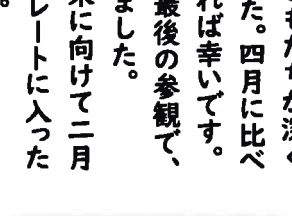 もたちが深く
た。四月に比べ
れば幸いです。
最後の参観で、
ました。
末に向けて二月
レートに入った
。